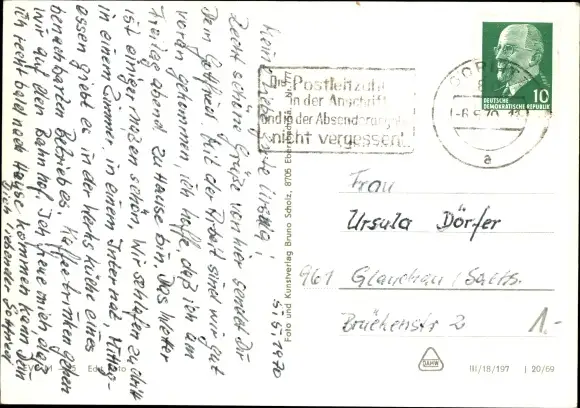 5.5.1970
Meine liebste Ursula!
Recht schöne Grüße von hier sendet Dir
Dein Gottfried. Mit der Arbeit sind wir gut
voran gekommen, ich hoffe, daß ich am
Freitagabend zu Hause bin. Das Wetter
ist einiger maßen schön. Wir schlafen zu dritt
in einem Zimmer, in einem Internat. Mittag-
essen giebt es in der Werksküche eines
benachbarten Betriebes. Kaffee trinken gehen
wir auf den Bahnhof. Ich freue mich, daß
ich recht bald nach Hause kommen kann. Dein
Dich liebender Gottfried
Foto und Kunstverlag Bruno Scholz, 8705 Ebersbach
Die Postleitzahl
in der Anschrift
und in der Absenderangabe
nicht vergessen!
DEUTSCHE
DEMOKRATISCHE REPUBLIK
10
a
Frau
Ursula Dörfer
961 Glauchau/Sachs.
Brückenstr 2
1.-
DAHW
III/18/197 J 20/69